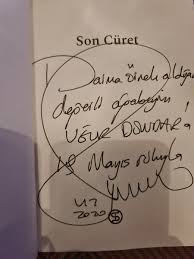 Son Cüret
Daima örnek aldığım
değerli ağabeyim,
UĞUR DÜNDAR'a
19 Mayıs ruhuyla
2020